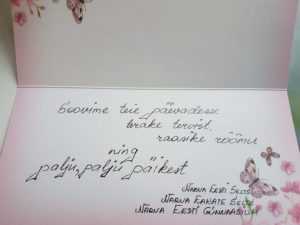 Soovime teie päevadesse
terake tervist,
raasike rõõmu
ning
palju, palju päikest
NARVA EESTI SELTS
NARVA KAKATE SELTS
NARVA EESTI GÜMNAASIUM